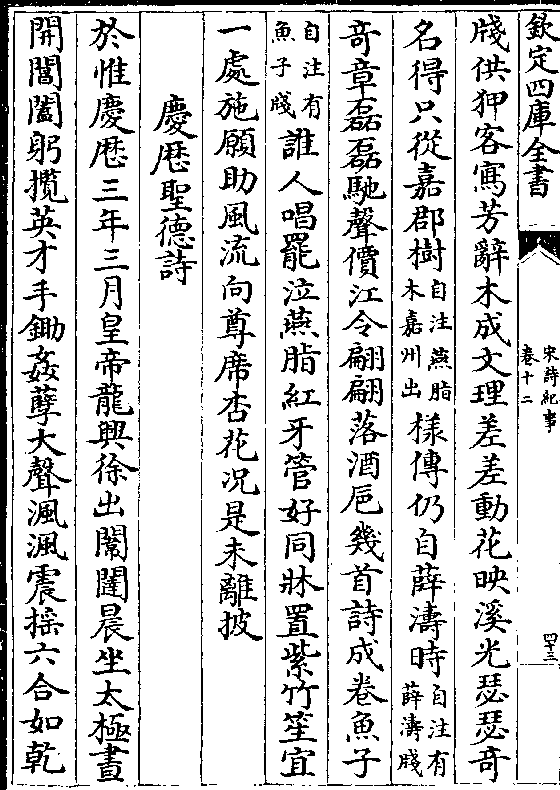 欽定四庫全書
宋詩紀事
卷十二
四十三
牋供狎客寫芳辭木成文理差差動花映溪光瑟瑟奇
名得只從嘉郡樹自注燕脂木嘉州出樣傳仍自薛濤時自注有薛濤牋
竒章磊磊馳聲價江令翩翩落酒巵幾首詩成卷魚子
自注有魚子牋誰人唱罷泣燕脂紅牙管好同牀置紫竹笙宜
一處施願助風流向尊席杏花况是未離披
慶厯聖德詩
於惟慶厯三年三月皇帝龍興徐出闈闥晨坐太極晝
開閶闔躬攬英才手鋤姦孽大聲渢渢震揺六合如乾